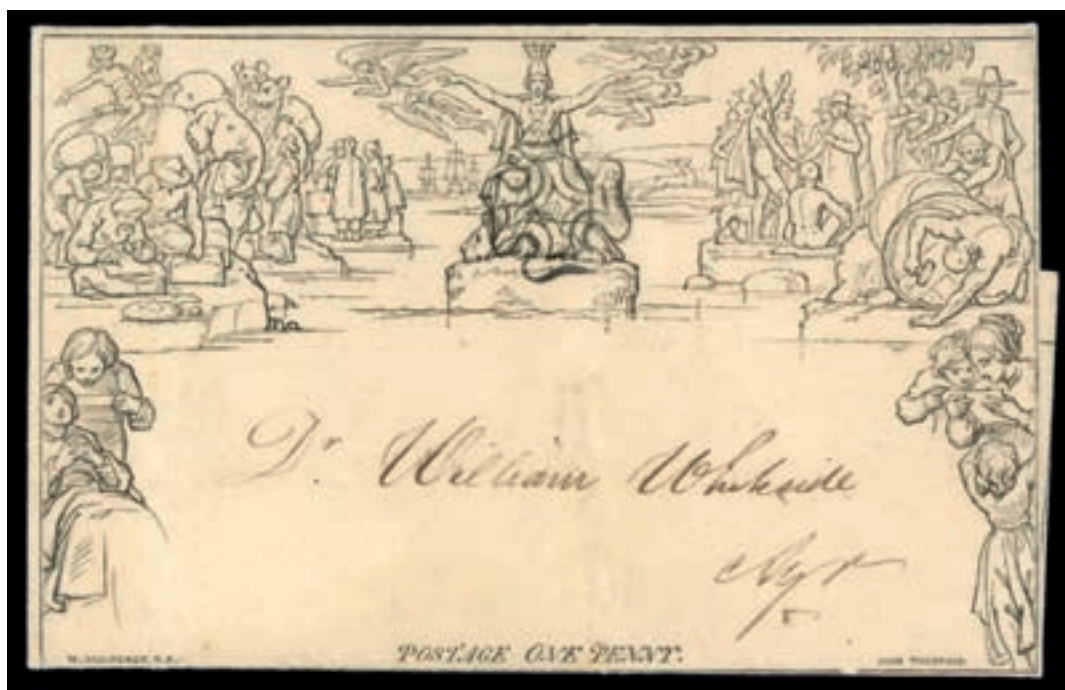 Dr William Whiteside
Ayr
W. MULREADY, R.A.
POSTAGE ONE PENNY.
JOHN THOMPSON